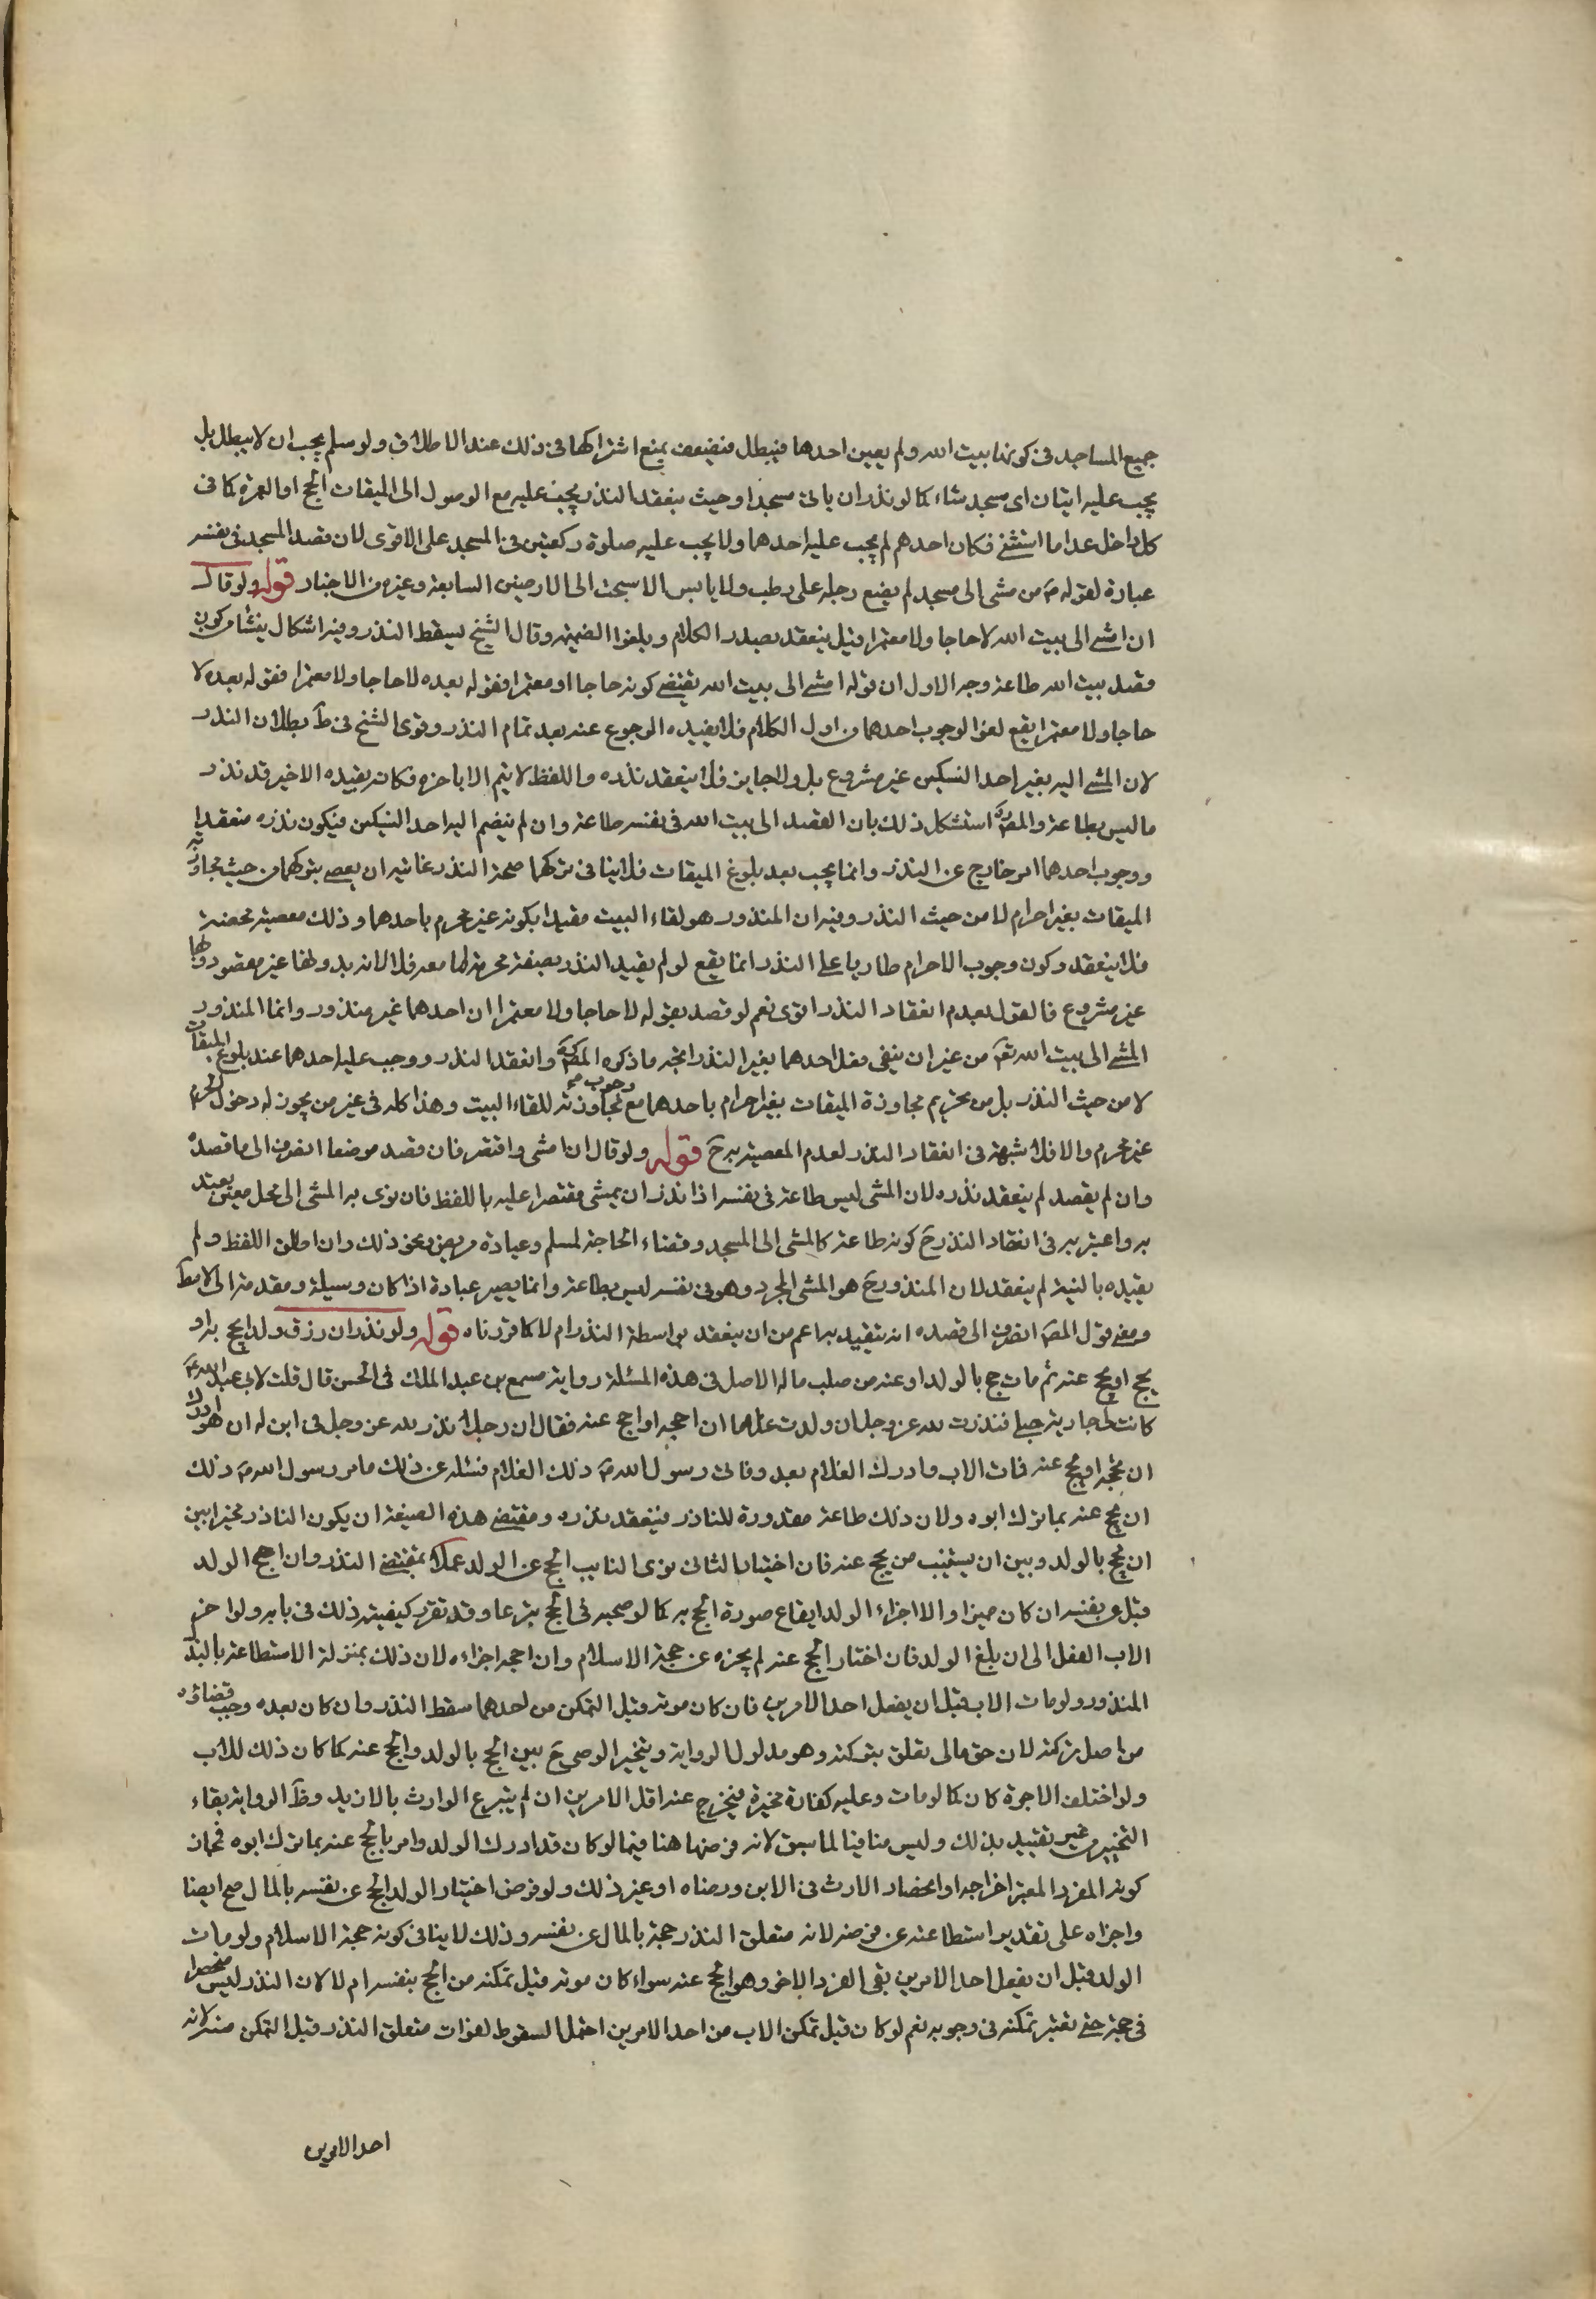 جميع المساجد فى كونها بيت الله ولم يعين احدها فيبطل فيضعف بمنع اشتراكها فى ذلك عند الاطلاق ولو سلم يجب ان لا يبطل بل
يجب عليه اتيان اى مسجد شاء كما لو نذر ان ياتى مسجدا وحيث ينعقد النذر يجب عليه مع الوصول الى الميقات الحج او العمرة كما فى
كل داخل عدا ما استثنى فكان احدهم لم يجب عليه احدهما ولا يجب عليه صلوة ركعتين فى المسجد على الاقوى لان قصد المسجد فى نفسه
عبادة لقوله ص من مشى الى مسجد لم يضع رجله على رطب ولا يابس الا سبحت الى الارضين السابعة وغيره من الاخبار قوله ولو قال
ان امشى الى بيت الله لا حاجا ولا معتمرا قيل ينعقد بصدر الكلام ويلغوا الضميمة وقال الشيخ يسقط النذر وفيه اشكال ينشا من كون
قصد بيت الله طاعة وجه الاول ان قوله امشى الى بيت الله يقتضى كونه حاجا او معتمرا فقوله بعده لا حاجا ولا معتمرا فقوله بعده لا
حاجا ولا معتمرا يقع لغوا لوجوب احدهما من اول الكلام فلا يفيده الرجوع عنه بعد تمام النذر وقوى الشيخ فى ط بطلان النذر
لان المشى اليه بغير احد النسكين غير مشروع بل ولا جايز فلا ينعقد نذره واللفظ لا يتم الا باخره فكان بقيده الاخير قد نذر
ما ليس بطاعة والمص ره استشكل ذلك بان القصد الى بيت الله فى نفسه طاعة وان لم ينضم اليه احد النسكين فيكون نذره منعقدا
ووجوب احدهما امر خارج عن النذر وانما يجب بعد بلوغ الميقات فلا ينافى تركهما صحة النذر غايته ان يعصى بتركهما من حيث مجاوزته
الميقات بغير احرام لا من حيث النذر وفيه ان المنذور هو لقاء البيت مقيدا بكونه غير محرم باحدهما وذلك معصية محضة
فلا ينعقد وكون وجوب الاحرام طاريا على النذر انما يقع لو لم يقيد النذر بصفة محرمة اما معه فلا لانه بدونها غير مقصود وبها
غير مشروع فالقول بعدم انعقاد النذر اقوى نعم لو قصد بقوله لا حاجا ولا معتمرا ان احدهما غير منذور وانما المنذور
المشى الى بيت الله تع من غير ان ينفى فعل احدهما بغير النذر اتجه ما ذكره المص ره وانعقد النذر ووجب عليه احدهما عند بلوغ الميقات
لا من حيث النذر بل من تحريم مجاوزة الميقات بغير احرام باحدهما مع وجوب مجاوزته للقاء البيت وهذا كله فى غير من يجوز له دخول الحرم
غير محرم والا فلا شبهة فى انعقاد النذر لعدم المعصية به ح قوله ولو قال ان امشى واقتصر فان قصد موضعا انصرف الى ما قصده
وان لم يقصد لم ينعقد نذره لان المشى ليس طاعة فى نفسه اذا نذر ان يمشى مقتصرا عليه باللفظ فان نوى به المشى الى محل معين تعبد
به واعتبر به فى انعقاد النذر ح كونه طاعة كالمشى الى المسجد وقضاء الحاجة لمسلم وعيادة مريض ونحو ذلك وان اطلق اللفظ ولم
يقيده بالنية لم ينعقد لان المنذور ح هو المشى المجرد وهو فى نفسه ليس بطاعة وانما يصير عبادة اذا كان وسيلة ومقدمة
ومعنى قول المص انصرف الى قصده انه يتقيد به اعم من ان ينعقد بواسطة النذر ام لا كما قررناه قوله ولو نذر ان رزق ولدا يحج به او
يحج او يحج عنه ثم مات حج بالولد او عنه من صلب ماله الاصل فى هذه المسئلة رواية مسمع بن عبد الملك فى الحسن قال قلت لابى عبد الله ع
كانت لى جارية حبلى فنذرت لله عز وجل ان ولدت غلاما ان احجه او احج عنه فقال ان رجلا نذر لله عز وجل فى ابن له ان هو ادرك
ان يحجه او يحج عنه فمات الاب وادرك الغلام بعد وفاتى رسول الله ص ذلك الغلام فسئله عن ذلك فامر رسول الله ص ذلك
ان يحج عنه بما ترك ابوه ولان ذلك طاعة مقدورة للناذر فينعقد نذره ومقتضى هذه الصيغة ان يكون الناذر مخيرا بين
ان يحج بالولد وبين ان يستنيب من يحج عنه فان اختيار الثانى نوى النايب الحج عن الولد عملا بمقتضى النذر وان احج الولد
قبل بنفسه ان كان مميزا والا اجزاء الولد ايقاع صورة الحج به كما لو صحبه فى الحج تبرعا وقد تقرر كيفية ذلك فى بابه ولو اخر
الاب الفعل الى ان بلغ الولد فان اختار الحج عنه لم يجزه عن حجة الاسلام وان احجه اجزاءه لان ذلك بمنزلة الاستطاعة بالبذل
المنذور ولو مات الاب قبل ان يفعل احد الامرين فان كان موته قبل التمكن من احدهما سقط النذر وان كان بعده وجب قضاؤه
من اصل تركته لان حق مالى تعلق بتركته وهو مدلول الرواية ويتخير الوصى ح بين الحج بالولد والحج عنه كما كان ذلك للاب
ولو اختلف الاجرة كان كما لو مات وعليه كفارة مخيرة فيخرج عنه اقل الامرين ان لم يتبرع الوارث بالازيد وظ الرواية بقاء
التخيير من غير تقييد بذلك وليس منافيا لما سبق لانه فرضها هنا فيما لو كان قد ادرك الولد وامر بالحج عنه بما ترك ابوه فجاز
كونه الفرد المعتبر اخراجه او انحصار الارث فى الابن ورضاه او غير ذلك ولو فرض اختيار الولد الحج عن نفسه بالمال صح ايضا
واجزاه على تقدير استطاعته عن فرضه لانه متعلق النذر حجة بالمال عن نفسه وذلك لا ينافى كونه حجة الاسلام ولو مات
الولد قبل ان يفعل احد الامرين بقى الفرد الاخر وهو الحج عنه سواء كان موته قبل تمكنه من الحج بنفسه ام لا لان النذر ليس منحصرا
فى حجة حتى يعتبر تمكنه فى وجوبه نعم لو كان قبل تمكن الاب من احد الامرين احتمل السقوط لفوات متعلق النذر قبل التمكن منه لانه
احد الامرين